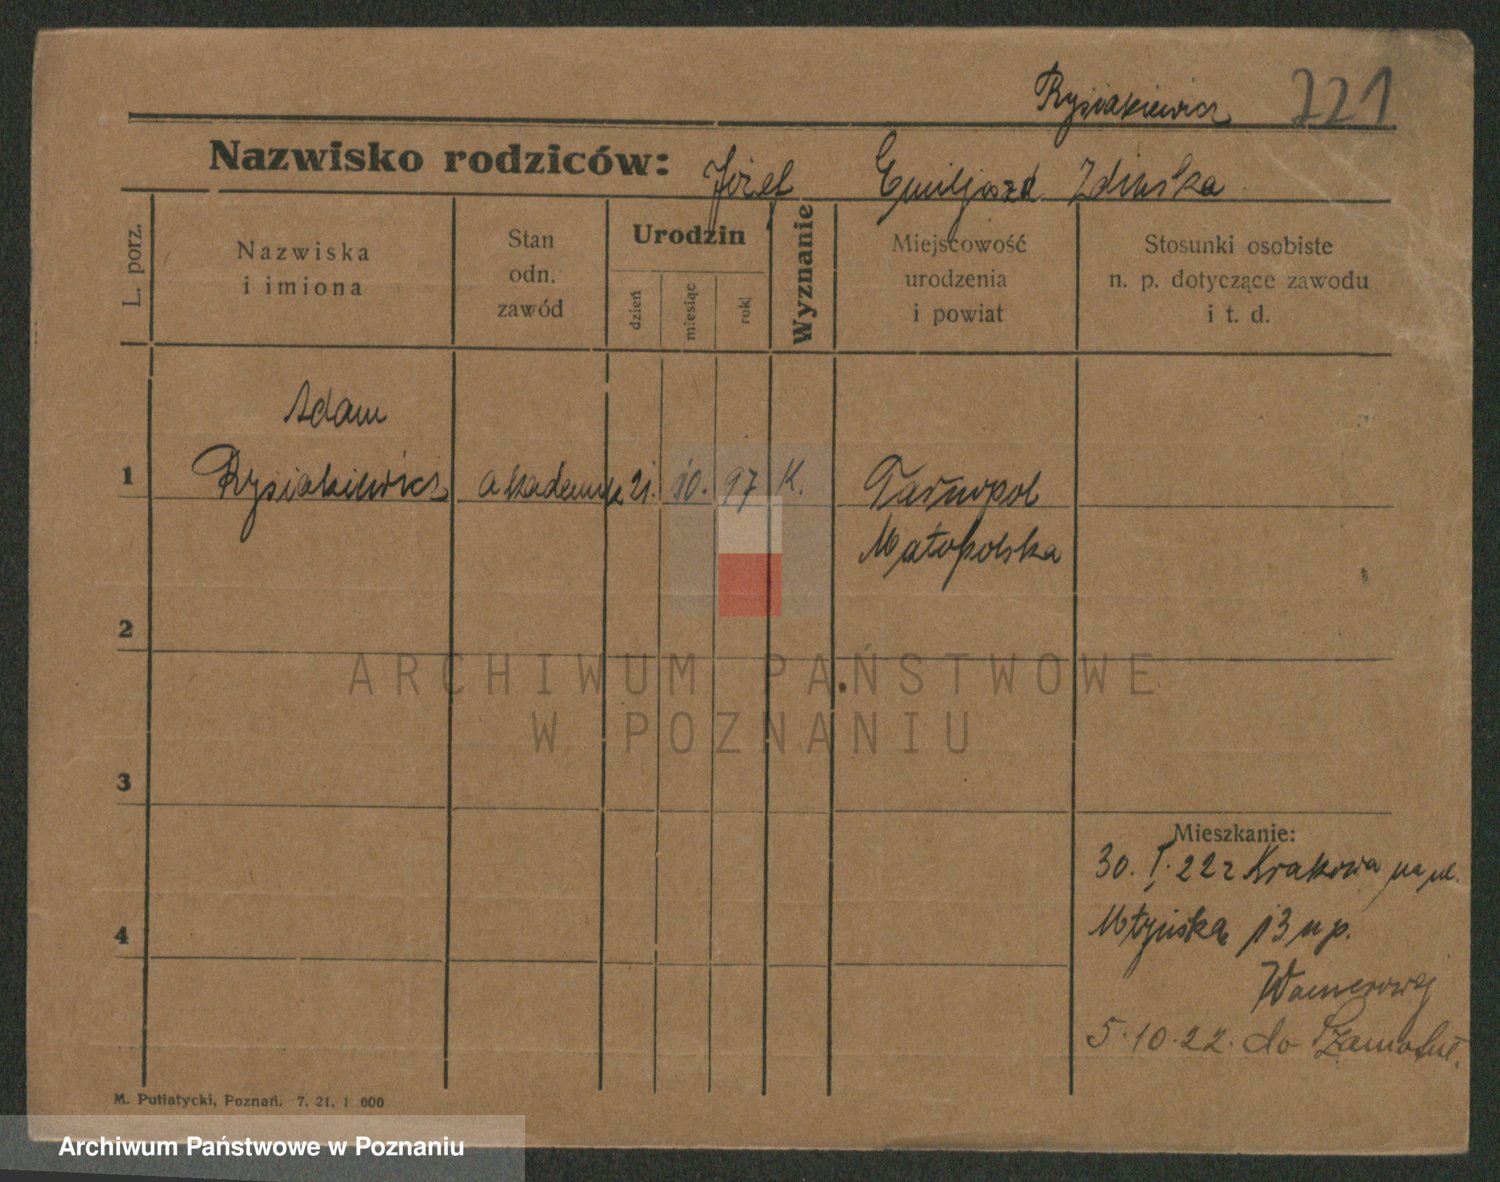 Rysiakiewicz 721
Nazwisko rodziców: Józef Emilja zd. Zdińska
L. porz.
Nazwiska
i imiona
Stan
odn.
zawód
Urodzin
dzień
miesiąc
rok
Wyznanie
Miejscowość
urodzenia
i powiat
Stosunki osobiste
n. p. dotyczące zawodu
i t. d.
Adam
1 Rysiakiewicz akademik 21. 10. 97 K. Tarnopol
Małopolska
2
3
4
ARCHIWUM PAŃSTWOWE
W POZNANIU
Mieszkanie:
30. I. 22 z Krakowa na ul.
Młyńską 13 u p.
5.10.22. do Szamotuł.
M. Putiatycki, Poznań. 7. 21. 1 000
Archiwum Państwowe w Poznaniu